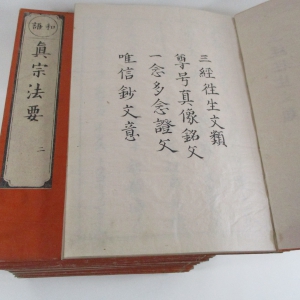 三経往生文類
尊号真像銘文
一念多念證文
唯信鈔文意
和語
眞宗法要
二